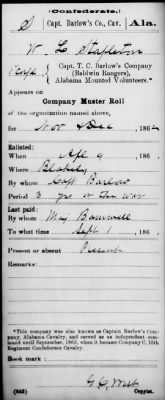 (Confederate.)
S Capt. Barlow's Co., Cav. Ala.
W. L. Stapleton
Capt. T. C. Barlow's Company
(Baldwin Rangers),
Alabama Mounted Volunteers.*
Appears on
Company Muster Roll
of the organization named above,
for Nov & Dec, 186
Enlisted:
When Apl 9, 186
Where Blakely
By whom Capt Barlow
Period 3 yrs or the war
Last paid:
By whom Maj Barnwell
To what time Sept 1, 186
Present or absent Present
Remarks:
*This company was also known as Captain Barlow's Company, Alabama Cavalry, and served as an independent command until September, 1863, when it became Company C, 15th Regiment Confederate Cavalry.
Book mark:
(642)
Copyist.